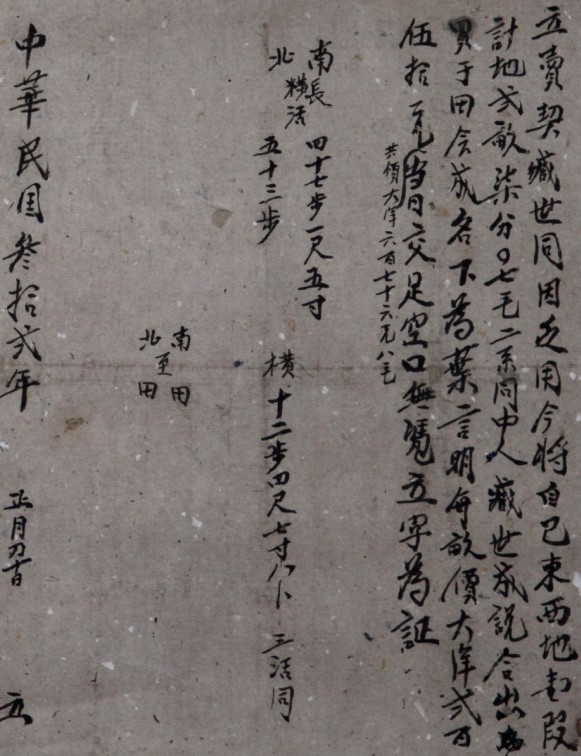 立賣契臧世同因乏用今將自己東西地壹段
計地弍畝柒分〇七毛二系同中人臧世成說合出
買于田會成名下為業言明每畝價大洋弍百
伍拾元當日交足空口無憑立字為証
共價大洋六百七十六元八毛
南長四十七步一尺五寸
北 五十三步
橫活
橫十二步四尺七寸八卜 三活同
南 田
北至田
中華民国叁拾弍年 正月 立